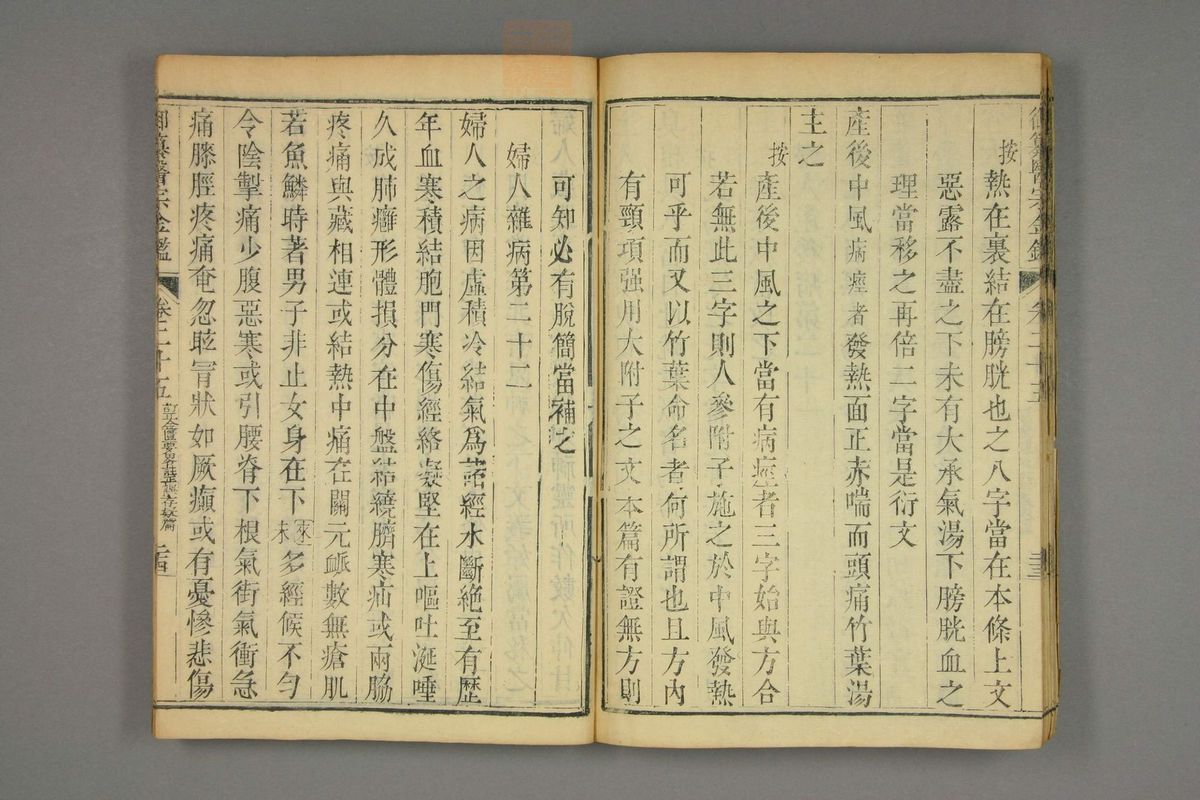 按熱在裏結在膀胱也之八字當在本條上文
惡露不盡之下未有大承氣湯下膀胱血之
理當移之再倍二字當是衍文
產後中風病痙者發熱面正赤喘而頭痛竹葉湯
主之
按產後中風之下當有病痙者三字始與方合
若無此三字則人參附子施之於中風發熱
可乎而又以竹葉命名者何所謂也且方內
有頸項强用大附子之文本篇有證無方則
可知必有脫簡當補之
婦人雜病第二十二
婦人之病因虛積冷結氣爲諸經水斷絕至有歷
年血寒積結胞門寒傷經絡凝堅在上嘔吐涎唾
久成肺癰形體損分在中盤結繞臍寒疝或兩脇
疼痛與藏相連或結熱中痛在關元脈數無瘡肌
若魚鱗時著男子非止女身在下來未多經候不勻
令陰掣痛少腹惡寒或引腰脊下根氣街氣衝急
痛膝脛疼痛奄忽眩冒狀如厥癲或有憂慘悲傷
御纂醫宗金鑑 卷二十五